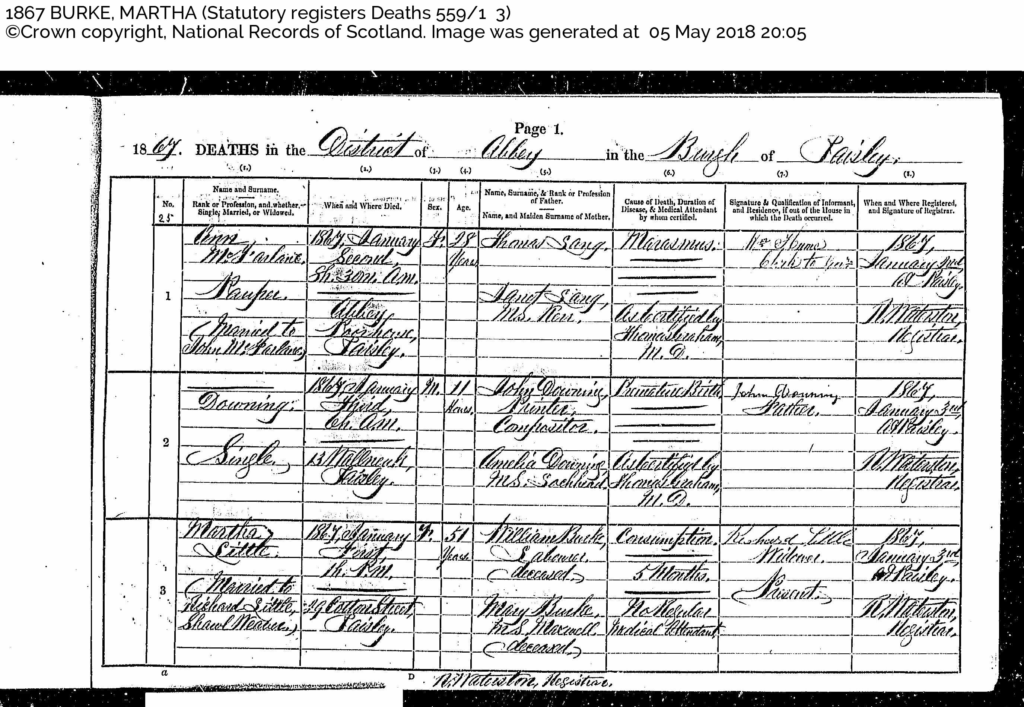 1867 BURKE, MARTHA (Statutory registers Deaths 559/1 3)
©Crown copyright, National Records of Scotland. Image was generated at 05 May 2018 20:05
Page 1.
1867. DEATHS in the District of Abbey in the Burgh of Paisley.
(1.) (2.) (3.) (4.) (5.) (6.) (7.) (8.)
No.
25
Name and Surname.
Rank or Profession, and whether Single, Married, or Widowed.
When and Where Died.
Sex.
Age.
Name, Surname, & Rank or Profession of Father.
Name, and Maiden Surname of Mother.
Cause of Death, Duration of Disease, & Medical Attendant by whom certified.
Signature & Qualification of Informant, and Residence, if out of the House in which the Death occurred.
When and Where Registered, and Signature of Registrar.
1
Ann
McFarlane
Pauper.
Married to
John McFarlane
1867, January
Second,
5h. 30m. A.M.
Abbey
Poorhouse,
Paisley.
F.
28
Years
Thomas Lang
Janet Lang,
M.S. Kerr.
Marasmus.
As certified by
Thomas Graham,
M.D.
1867,
January 3rd
At Paisley.
R. Waterston,
Registrar.
2
Downing.
Single
1867, January
Third,
6h. A.M.
13 Wallneuk,
Paisley.
M.
11
Hours.
John Downing,
Printer
Compositor.
Amelia Downing
M.S. Lochhead.
Premature Birth
As certified by
Thomas Graham,
M.D.
John Downing
Father.
1867,
January 3rd
At Paisley.
R. Waterston,
Registrar.
3
Martha
Little.
(Married to
Richard Little,
Shawl Weaver)
1867, January
First,
1h. P.M.
29 Cotton Street,
Paisley.
F.
51
Years.
William Burke,
Labourer
(deceased)
Mary Burke
M.S. Maxwell
(deceased)
Consumption.
5 Months.
No Regular
Medical Attendant
Richard Little
Widower.
Present.
1867,
January 3rd
At Paisley.
R. Waterston,
Registrar.
a
D
R. Waterston, Registrar.